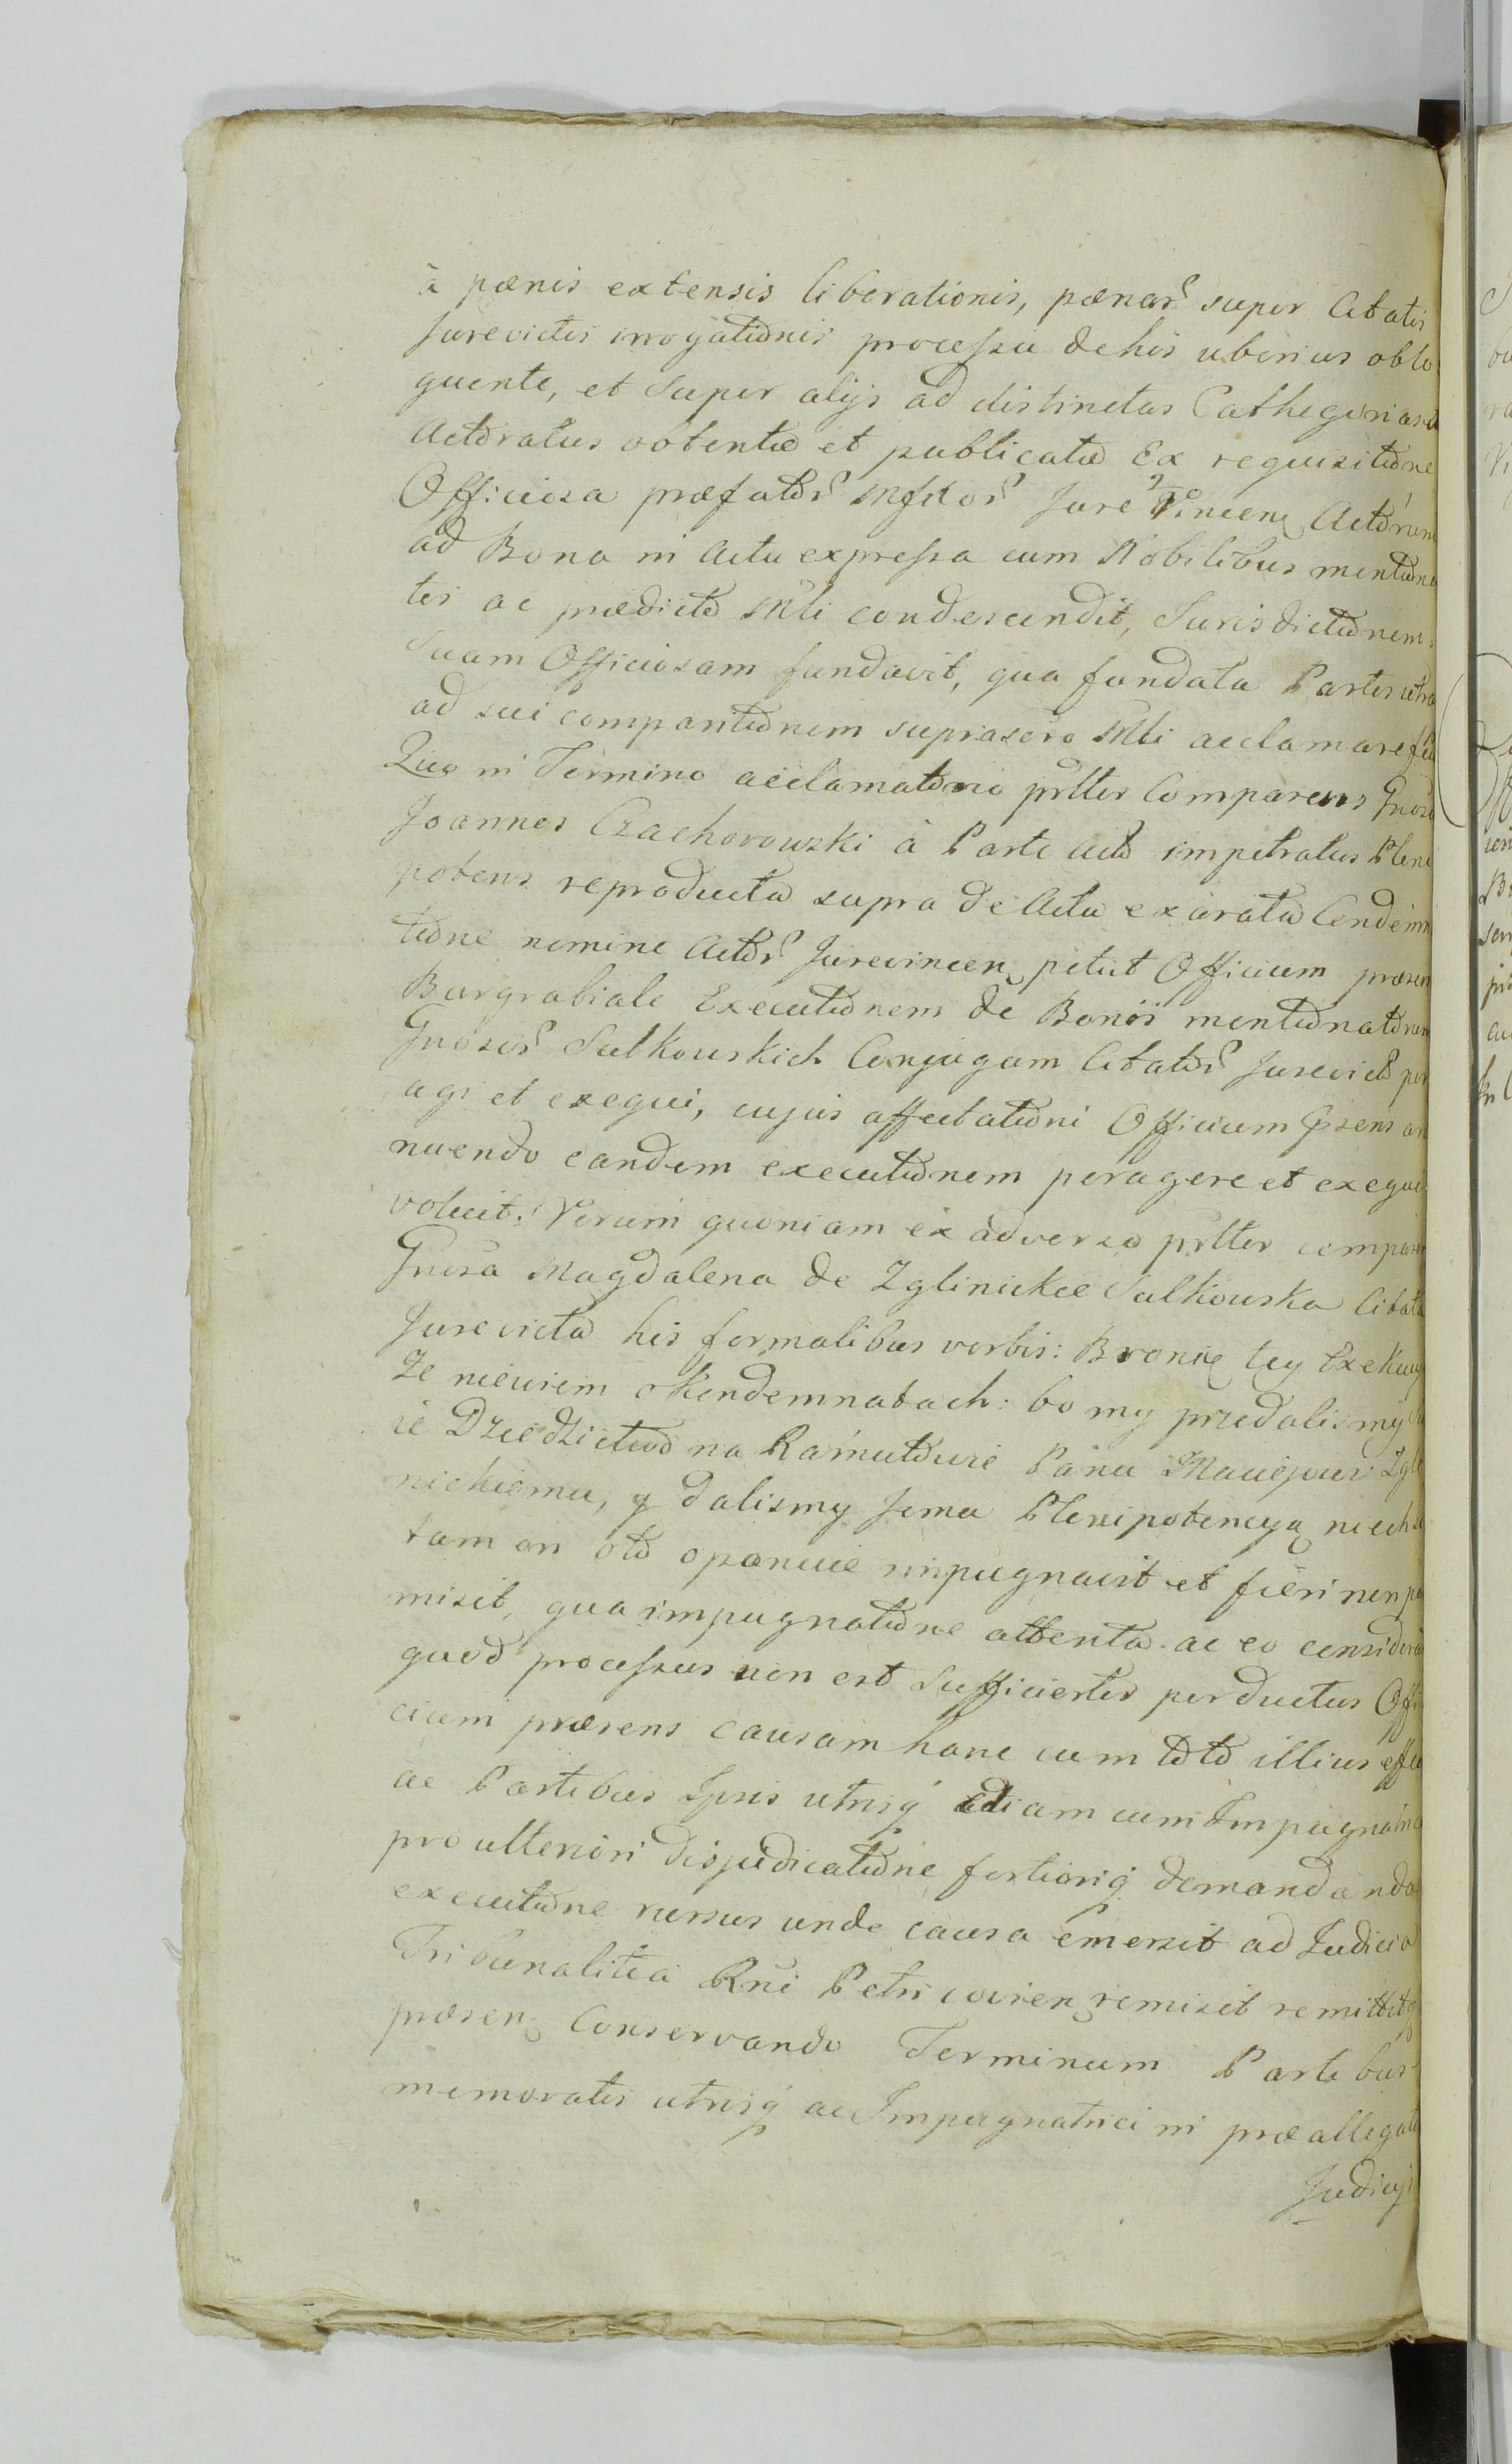 à pænis extensis liberationis, pænar super Citatis
Jurevictis irrogationis processu de his uberius oblo
quente, et super alijs ad distinctas Cathegorias
Actoratus obtenta et publicata Ex requisitione
Officiosa præfator Mfcor Jure Vincen Actorum
ad Bona in Actu expressa cum Nobilibus mentiona
tis ac prædicto Mli condescendit, Jurisdictionem
Suam Officiosam fundavit, qua fundata Partes
ad sui comparitionem supra Mli acclamare
Quo in Termino acclamationis prltter Comparens Gnosus
Joannes Czachorowski à Parte Acto impetratus Pleni
potens reproducta supra de Actu exarata Condemna
tione nomine Actor Jurevincen petiit Officium præsen
Burgrabiale Executionem de Bonis mentionatorum
Gnosor Sulkowskich Conjugum Citator Jurevicto per
agi et exequi, cujus affectationi Officium Prsens an
nuendo eandem executionem peragere et exequi
voluit. Verum quoniam ex adverso prltter comparen
Gnosa Magdalena de Zglinickie Sulkowska Citata
Jurevicta his formalibus verbis: Bronię tey Exekucy
Ze niewiem o Kondemnatach: bo my przedalismy
ie Dziedzictwo na Ramutowie Panu Maciejowi Zgli
nickiemu, y dalismy Jemu Plenipotencyą niech
tam on oto opanuie impugnavit et fieri non per
misit, qua impugnatione attenta ac eo considerato
quod processus non est sufficienter perductus Offi
cium præsens causam hanc cum toto illius effec
ac Partibus Ipsis utrisq etiam cum Impugnatrice
pro ulteriori disjudicatione fortiorisq demandanda
executione rursus unde causa emersit ad Judicia
Tribunalitia Rni Petricovien remisit remittitq
præsen Conservando Terminum Partibus
memoratis utrisq ac Impugnatrici in præallegatis
Judicijs